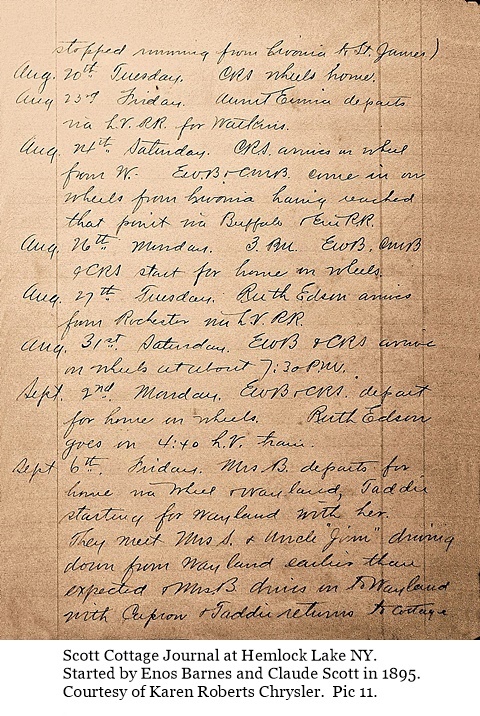 stopped running from Livonia to St James)
Aug. 20th Tuesday. CRS wheels home.
Aug 23rd Friday. Aunt Emma departs
via L.V. RR. for Watkins.
Aug. 24th Saturday. CRS. arrives on wheel
from W. EWB & CMB come in on
wheels from Livonia having reached
that point via Buffalo & Erie RR.
Aug. 26th Monday. 3. P.M. EWB. CMB
& CRS start for home on wheels.
Aug. 27th Tuesday. Ruth Edson arrives
from Rochester via L.V. RR.
Aug. 31st Saturday. EWB & CRS arrive
on wheels at about 7:30 P.M.
Sept. 2nd Monday. EWB & CRS. depart
for home on wheels. Ruth Edson
goes on 4:40 L.V. train.
Sept 6th. Friday. Mrs. B. departs for
home via Wheel & Wayland, Taddie
starting for Wayland with her.
They meet Mrs S. & Uncle "Jim" driving
down from Wayland earlier than
expected & Mrs B. drives in to Wayland
with Capron & Taddie returns to cottage
Scott Cottage Journal at Hemlock Lake NY.
Started by Enos Barnes and Claude Scott in 1895.
Courtesy of Karen Roberts Chrysler. Pic 11.